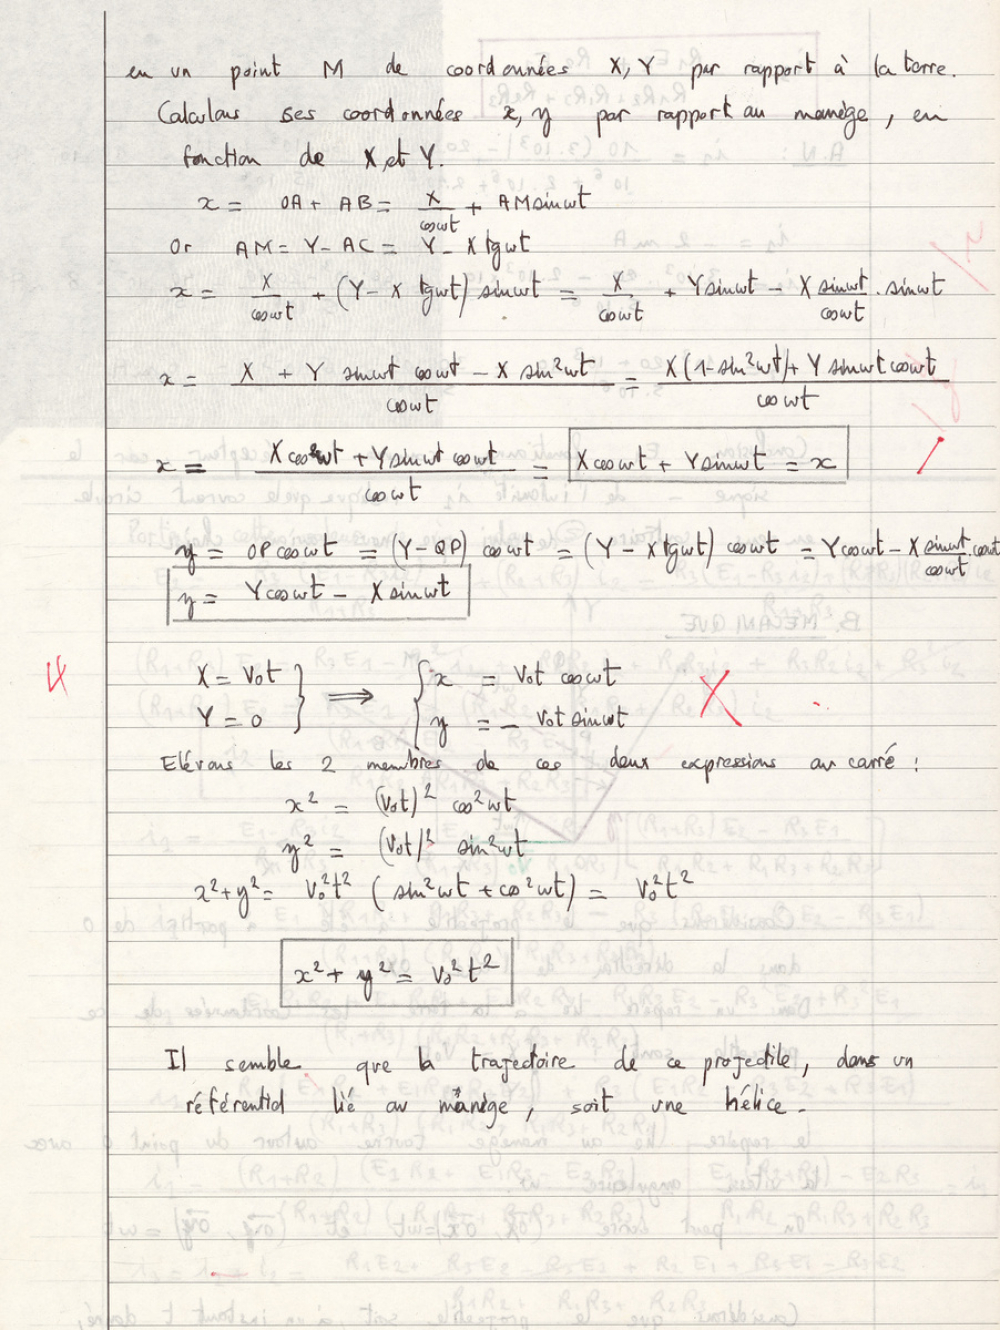 en un point M de coordonnées X, Y par rapport à la terre.
Calculons ses coordonnées x, y par rapport au manège, en
fonction de X, et Y.
x = OA + AB = X/cos wt + AM sin wt
Or AM = Y - AC = Y - X tg wt
x = X/cos wt + (Y - X tg wt) sin wt = X/cos wt + Y sin wt - X sin wt/cos wt . sin wt
x = (X + Y sin wt cos wt - X sin² wt)/cos wt = (X (1 - sin² wt) + Y sin wt cos wt)/cos wt
x = (X cos² wt + Y sin wt cos wt)/cos wt = X cos wt + Y sin wt = x
y = OP cos wt = (Y - QP) cos wt = (Y - X tg wt) cos wt = Y cos wt - X sin wt/cos wt . cos wt
y = Y cos wt - X sin wt
X = V₀t
Y = 0 } ⟹ { x = V₀t cos wt
y = - V₀t sin wt
Elévons les 2 membres de ces deux expressions au carré :
x² = (V₀t)² cos² wt
y² = (V₀t)² sin² wt
x² + y² = V₀²t² (sin² wt + cos² wt) = V₀²t²
x² + y² = V₀² t²
Il semble que la trajectoire de ce projectile, dans un
référentiel lié au manège, soit une hélice.